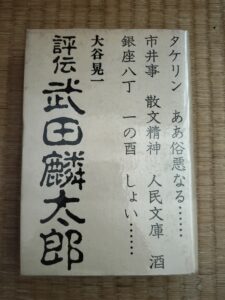 タケリン ああ俗悪なる……
市井事 散文精神 人民文庫 酒
銀座八丁 一の酉 しょい……
大谷晃一
評伝 武田麟太郎